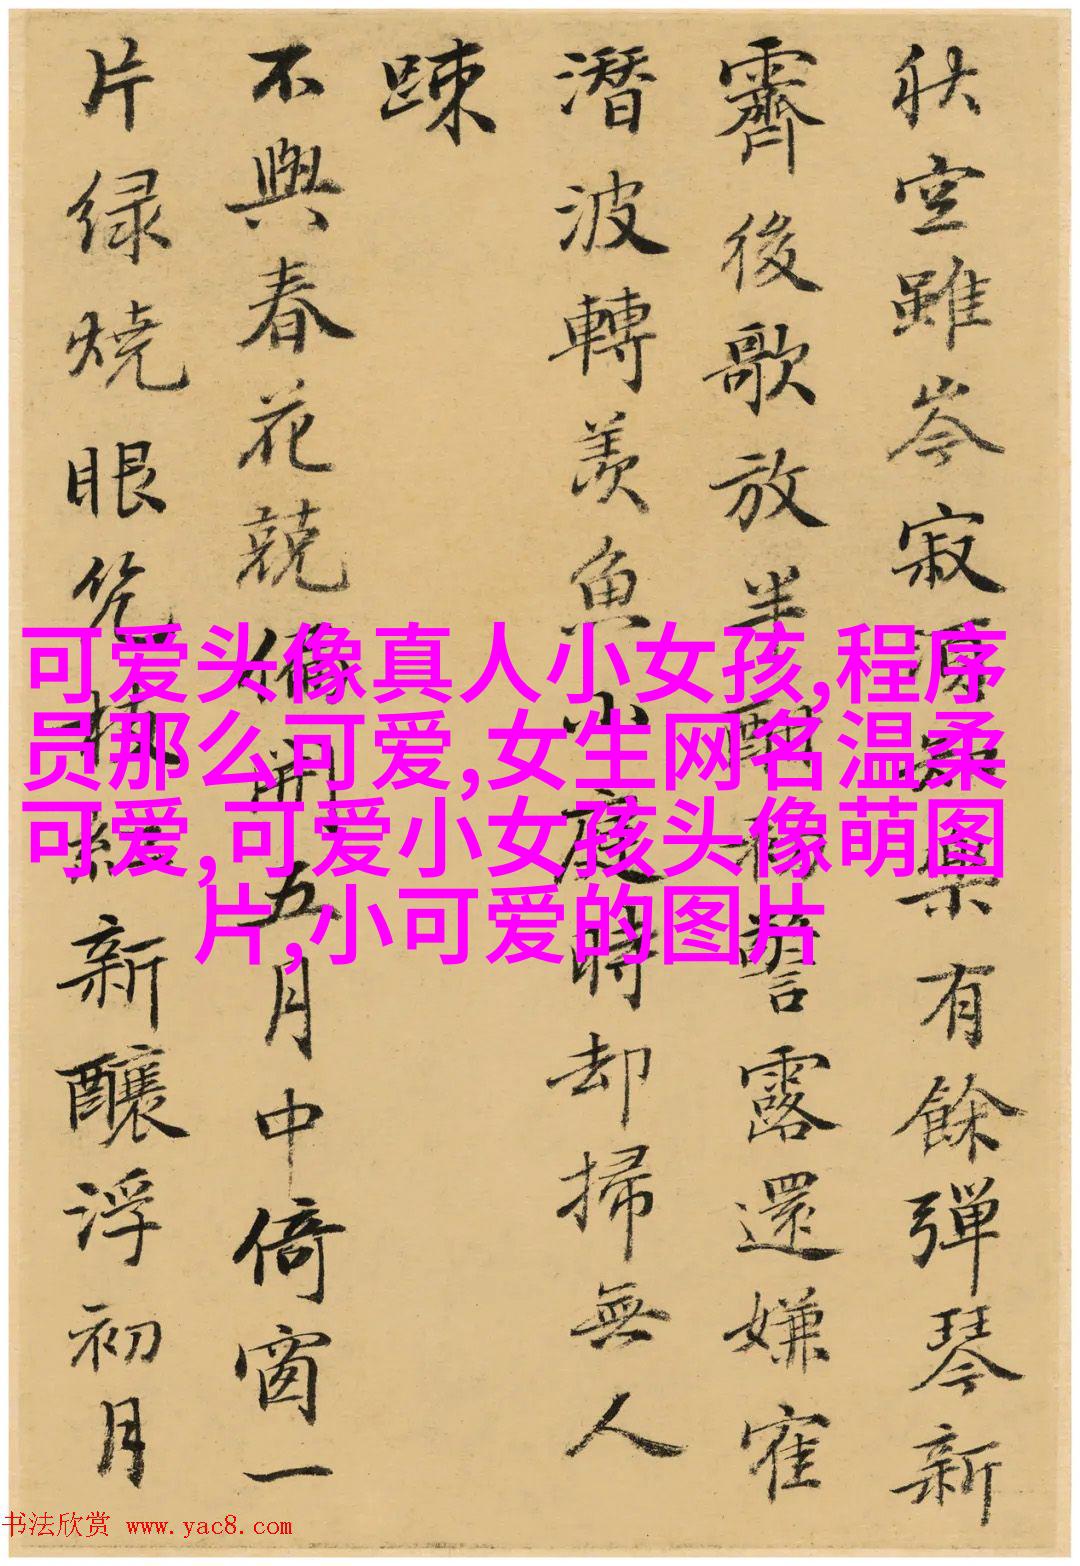 秋空雖岑寂果有餘彈琴新
霽後歌放半酣警露還嫌寉
潛波轉羨魚小庭時却掃無人
踈
不與春花競偏開五月中倚窗一
片绿燒眼枝紅新釀浮初月
可爱头像真人小女孩,程序
员那么可爱,女生网名温柔
可爱,可爱小女孩头像萌图
片,小可爱的图片
书法欣赏 www.yac8.com